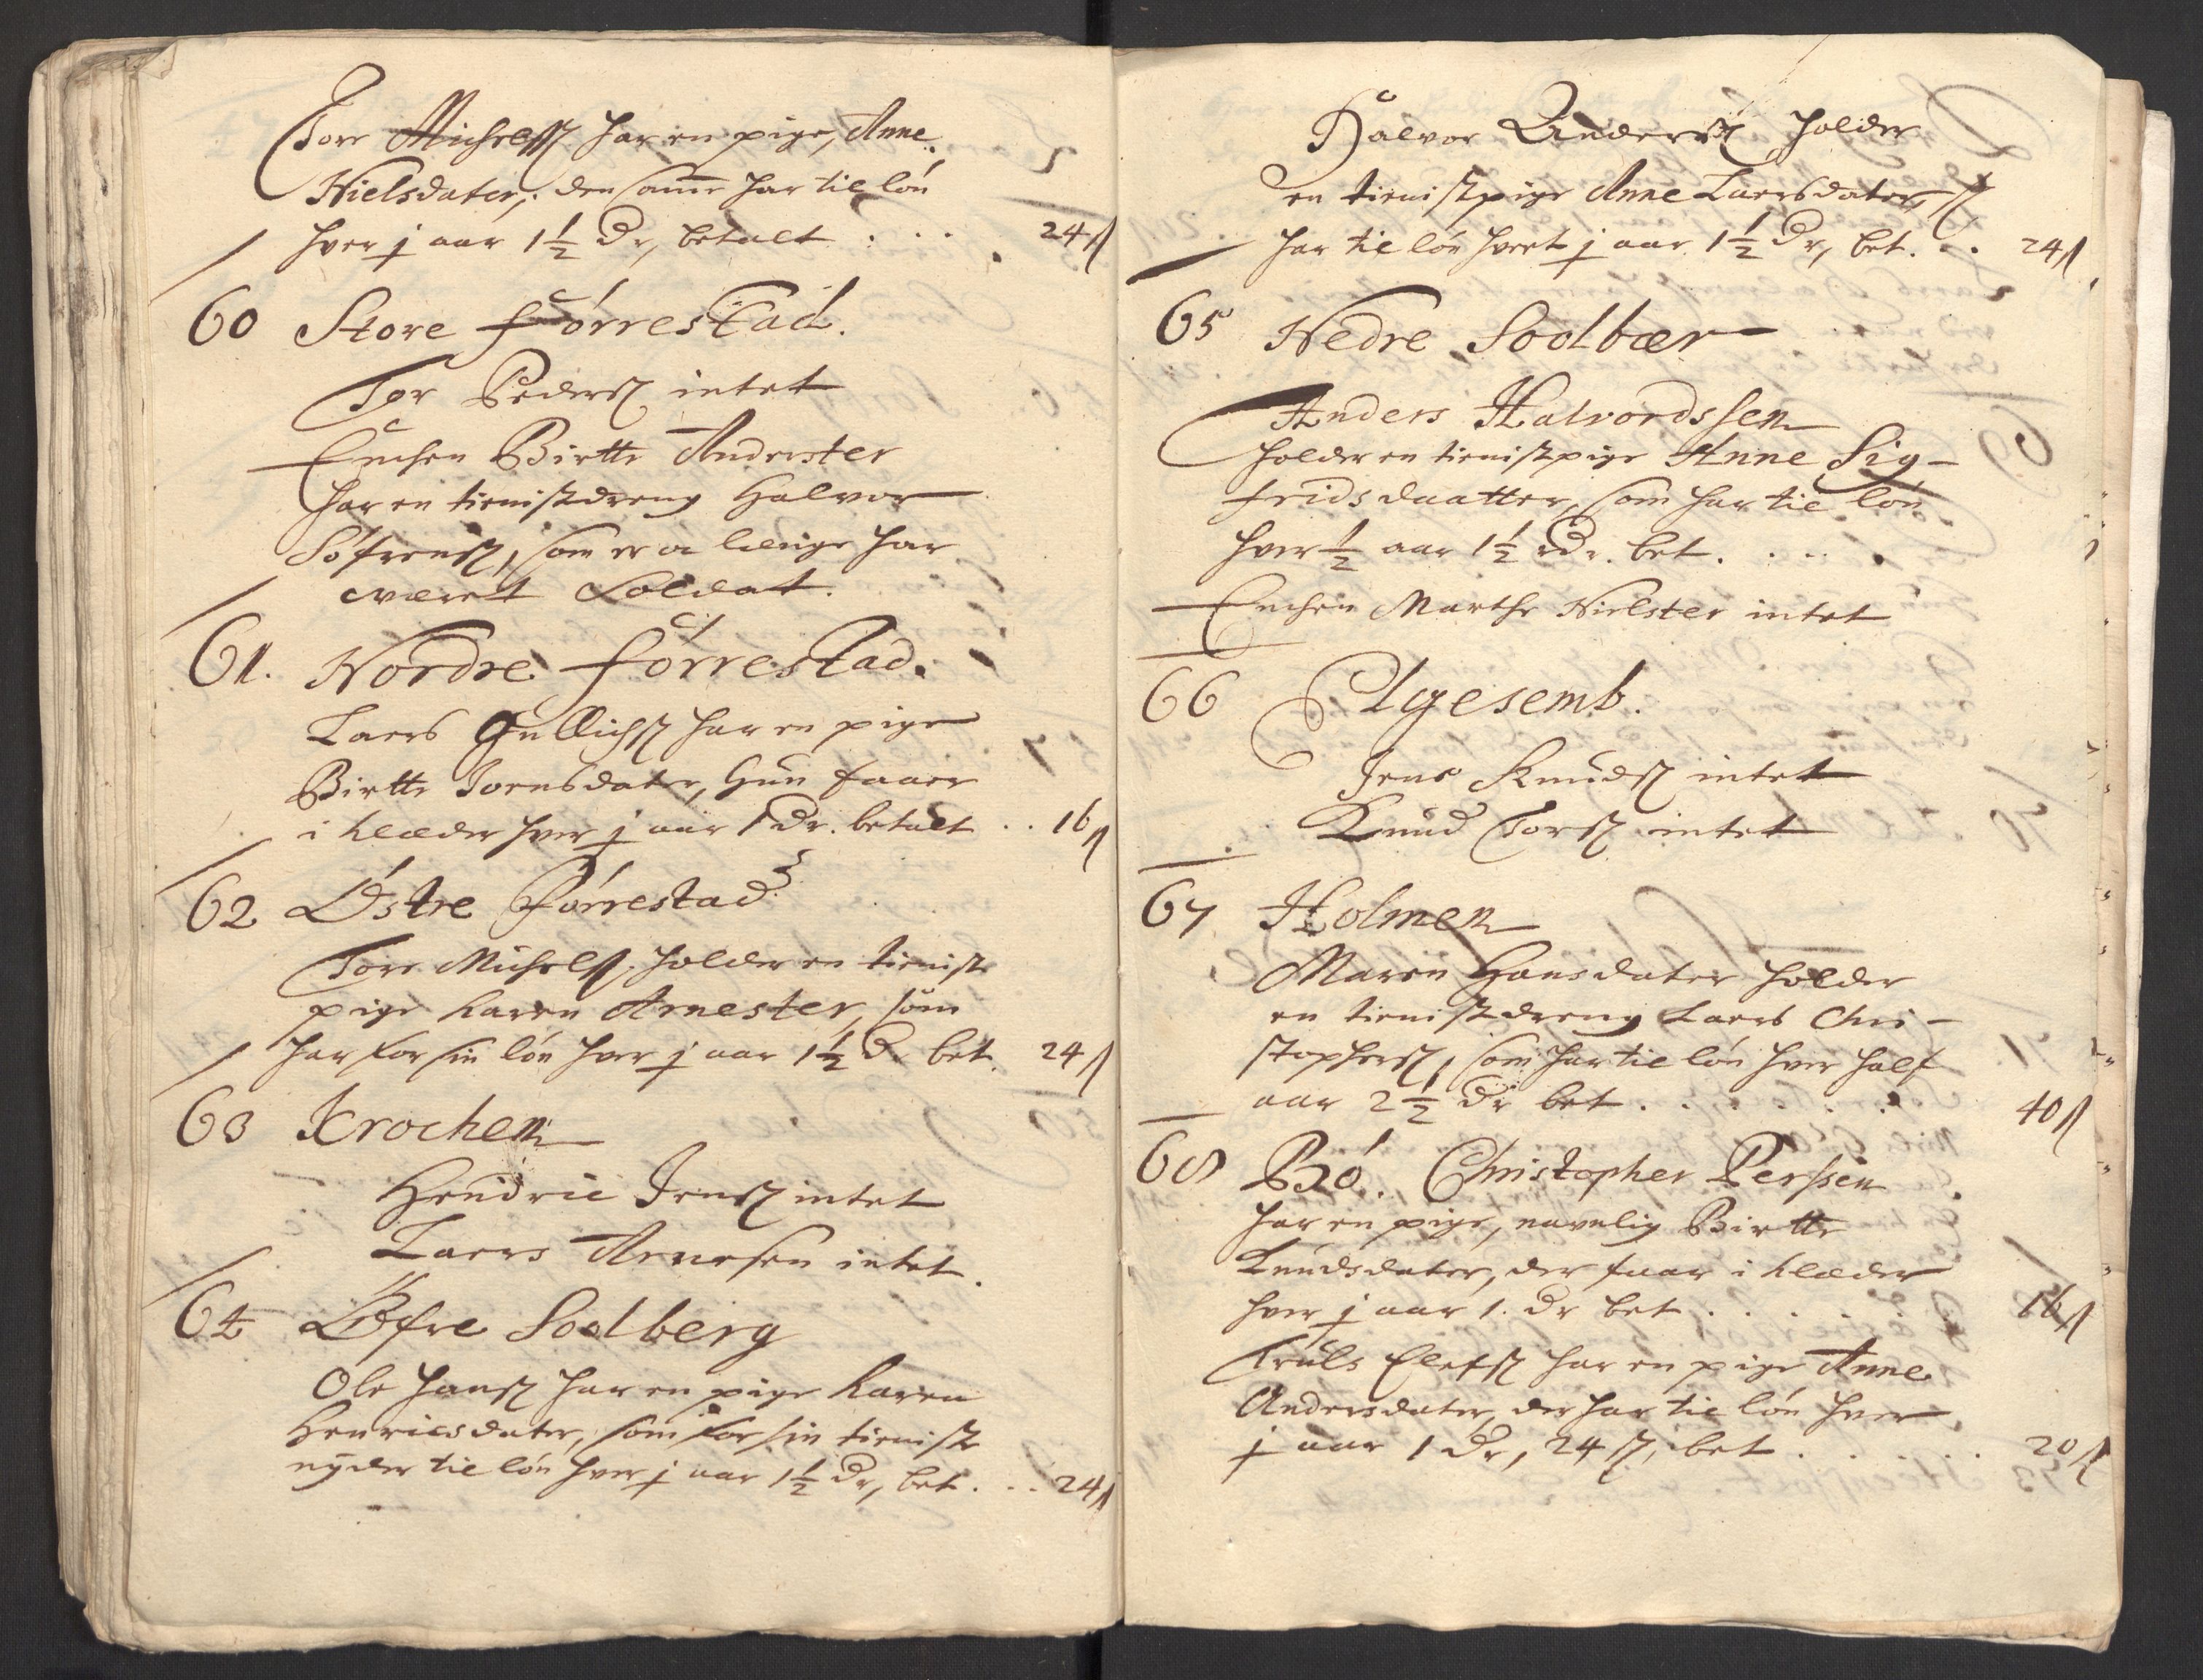 Tore Michelss: har en pige, Anne
Nielsdater, den samme har til løn
hver j aar 1½ Dr, betalt . . . 24 ß
60 Store Førrestad.
Tor Peders: intet
Enchen Birtte Anderster
har en tienistdreng Halvor
Søfrens:, som er og længe har
været Soldat.
61. Nordre Førrestad.
Laers Gullichs: har en pige
Birtte Joensdater, hun faaer
i klæder hver j aar 1 Dr. betalt . . 16 ß
62 Østre Førrestad
Tore Michelss: holder en tienist
pige Karen Arnester, som
har for sin løn hver j aar 1½ Dr bet. 24 ß
63 Krochen
Hendric Jens: intet
Laers Arnesen intet.
64 Øfre Soelberg
Ole Hans: har en pige Karen
Henricsdater, som for sin tieniste
nyder til løn hver j aar 1½ Dr, bet. . . 24 ß
Halvor Anders: holder
en tienistpige Anne Laersdater,
har til løn hvert j aar 1½ Dr, bet. . . 24 ß
65 Nedre Soelbær
Anders Halvordssen
holder en tienistpige Anne Sig-
fridsdaatter, som har til løn
hver ½ aar 1½ rdr. bet. . . .
Enchen Marthe Nielster intet
66 Elgesemb.
Jens Knuds: intet
Knud Tors: intet
67 Holmen
Maren Hansdater holder
en tienistdreng Laers Chri-
stophers:, som har til løn hver half
aar 2½ Dr bet. . . . . . 40 ß
68 Bø. Christopher Perssen
har en pige, navnlig Birtte
Knudsdater, der faar i klæder
hver j aar 1. Dr bet . . . . 16 ß
Truls Elefs: har en pige Anne
Andersdater, der har til løn hver
j aar 1 Dr, 24 ß, bet . . . . . 20 ß